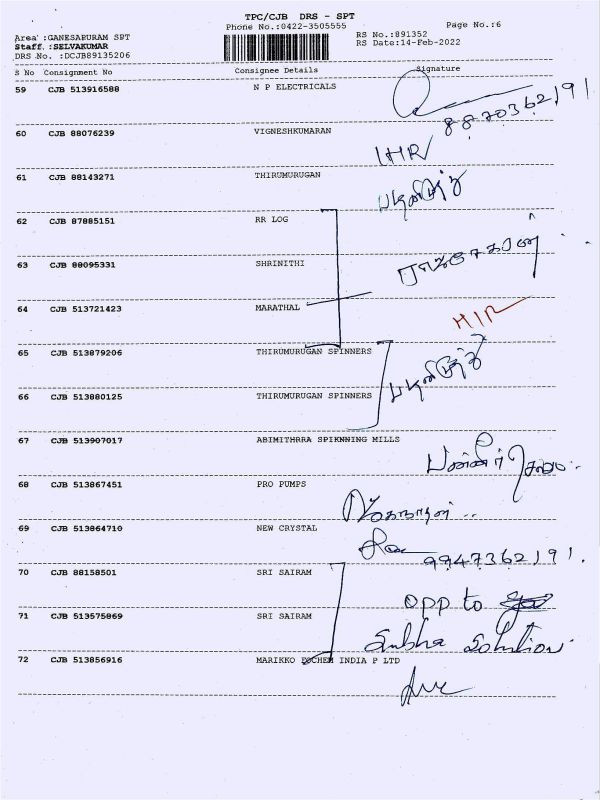 TPC/CJB DRS - SPT
Phone No.:0422-3505555
Page No.:6
Area :GANESAPURAM SPT
Staff :SELVAKUMAR
DRS No. :DCJB89135206
RS No.:891352
RS Date:14-Feb-2022
S No Consignment No Consignee Details Signature
59 CJB 513916588 N P ELECTRICALS
8870362191
60 CJB 88076239 VIGNESHKUMARAN
IHR
61 CJB 88143271 THIRUMURUGAN
62 CJB 87885151 RR LOG
63 CJB 88095331 SHRINITHI
64 CJB 513721423 MARATHAL
HIR
65 CJB 513879206 THIRUMURUGAN SPINNERS
66 CJB 513880125 THIRUMURUGAN SPINNERS
67 CJB 513907017 ABIMITHRRA SPIKNNING MILLS
68 CJB 513867451 PRO PUMPS
69 CJB 513864710 NEW CRYSTAL
9947362191.
70 CJB 88158501 SRI SAIRAM
opp to
71 CJB 513575869 SRI SAIRAM
Subha Solution
72 CJB 513856916 MARIKKO DOCHEM INDIA P LTD